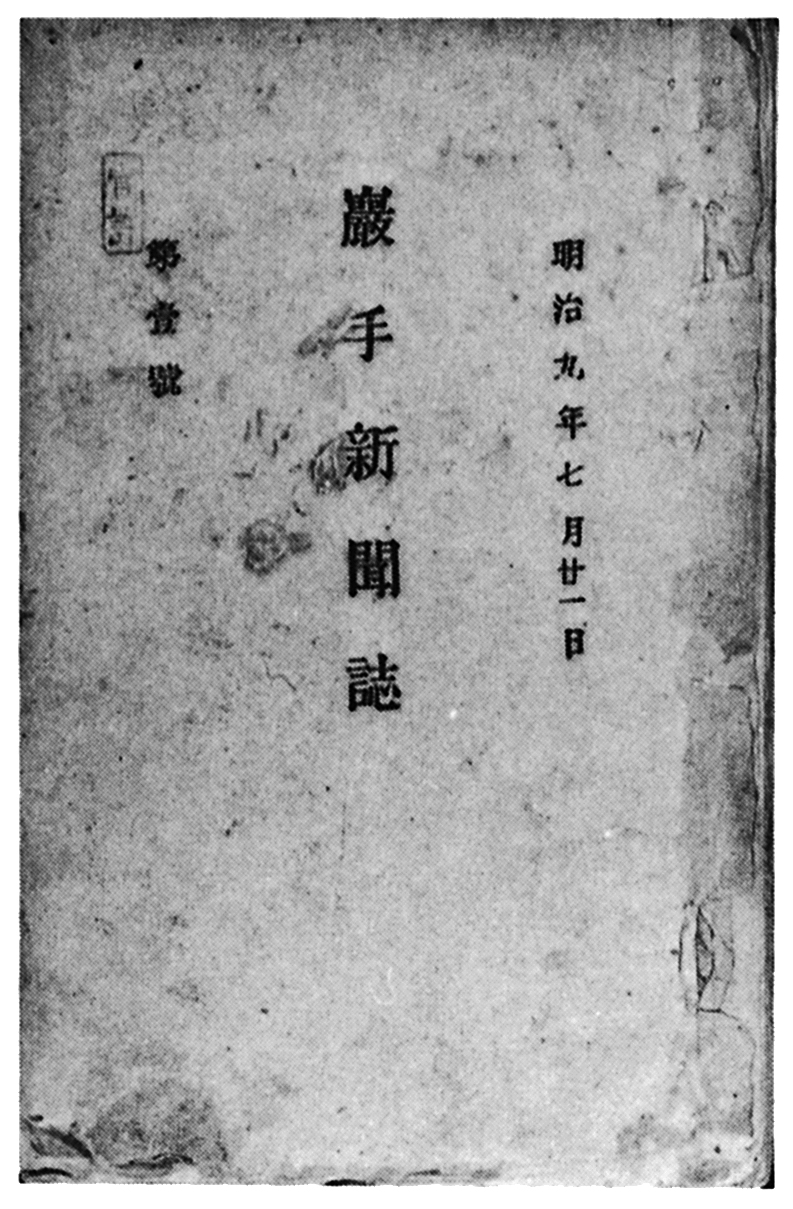 明治九年七月廿一日
巖手新聞誌
第壹號